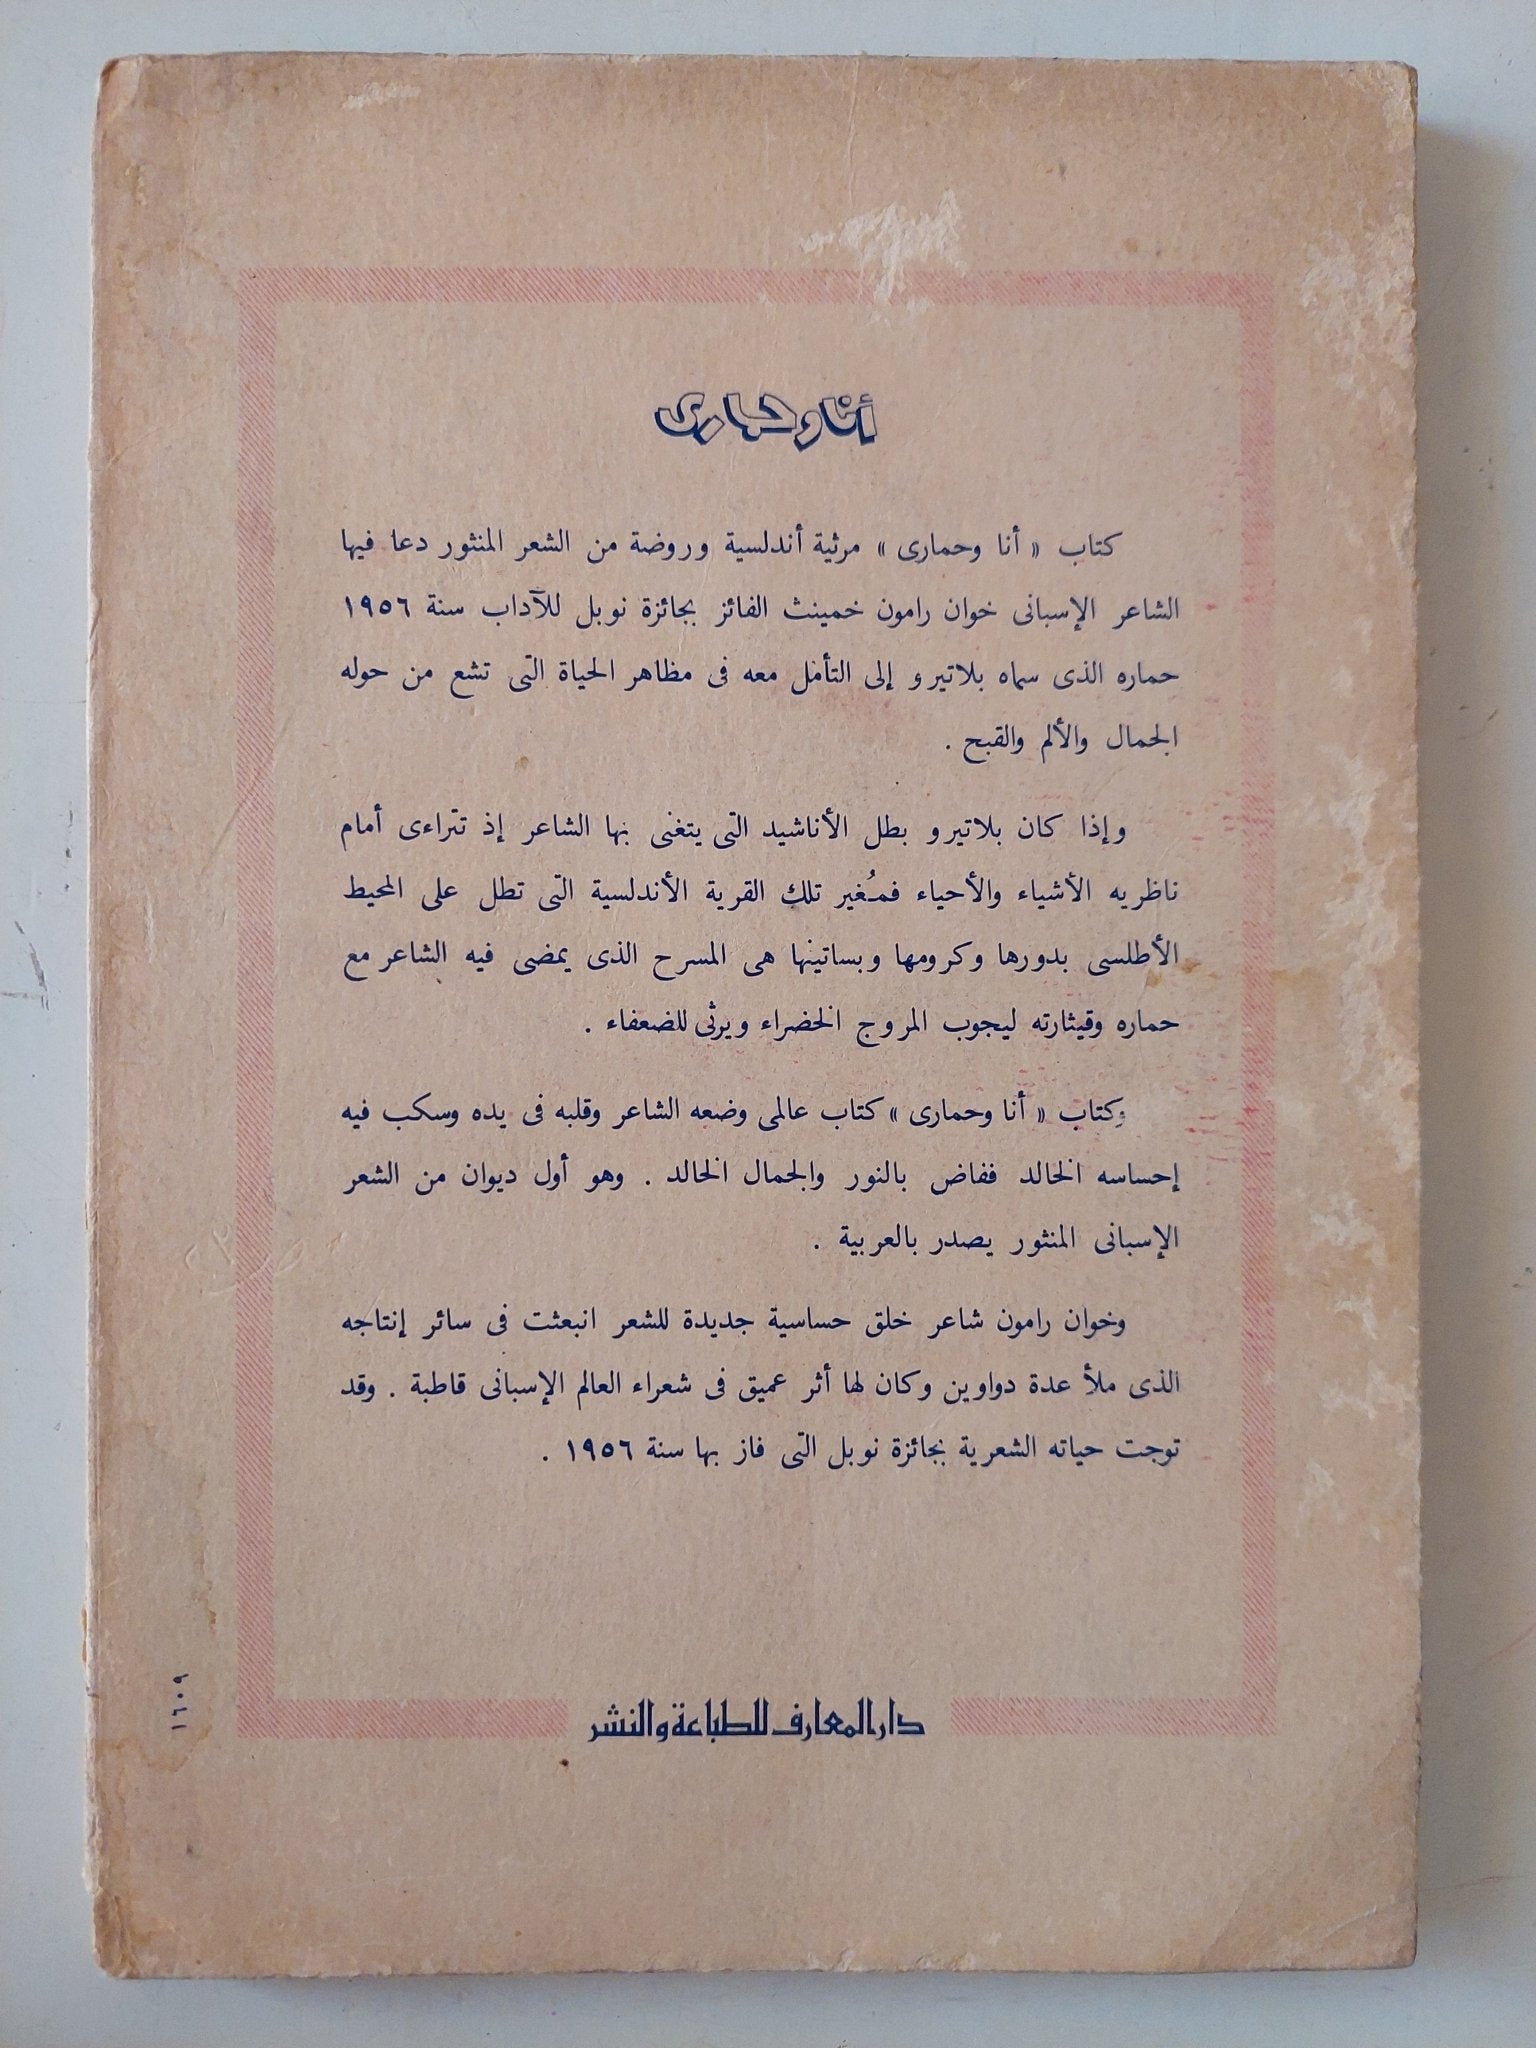 أنا وحمارى
كتاب « أنا وحمارى » مرثية أندلسية وروضة من الشعر المنثور دعا فيها
الشاعر الإسبانى خوان رامون خمينث الفائز بجائزة نوبل للآداب سنة ١٩٥٦
حماره الذى سماه بلاتيرو إلى التأمل معه فى مظاهر الحياة التى تشع من حوله
الجمال والألم والقبح .
وإذا كان بلاتيرو بطل الأناشيد التى يتغنى بها الشاعر إذ تتراءى أمام
ناظريه الأشياء والأحياء فمُغير تلك القرية الأندلسية التى تطل على المحيط
الأطلسى بدورها وكرومها وبساتينها هى المسرح الذى يمضى فيه الشاعر مع
حماره وقيثارته ليجوب المروج الخضراء ويرثى للضعفاء .
وكتاب « أنا وحمارى » كتاب عالمى وضعه الشاعر وقلبه فى يده وسكب فيه
إحساسه الخالد ففاض بالنور والجمال الخالد . وهو أول ديوان من الشعر
الإسبانى المنثور يصدر بالعربية .
وخوان رامون شاعر خلق حساسية جديدة للشعر انبعثت فى سائر إنتاجه
الذى ملأ عدة دواوين وكان لها أثر عميق فى شعراء العالم الإسبانى قاطبة . وقد
توجت حياته الشعرية بجائزة نوبل التى فاز بها سنة ١٩٥٦ .
دار المعارف للطباعة والنشر
١٦٠٩